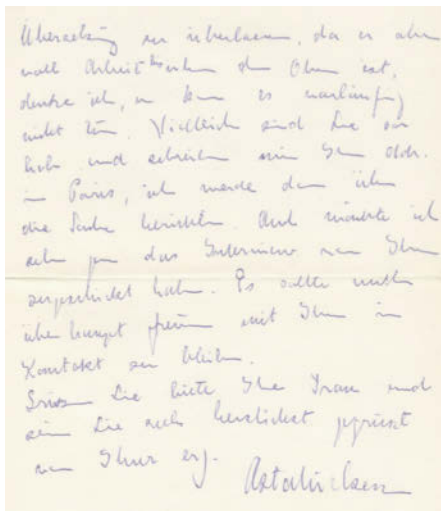 Übersetzung zu überlassen, da er aber
voll Arbeit bis über die Ohren ist,
denke ich, er kann es vorläufig
nicht tun. Vielleicht sind Sie so
lieb und schreiben mir Ihre Adr.
in Paris, ich werde dann über
die Sache berichten. Auch möchte ich
sehr gern das Interview von Ihnen
zugeschickt haben. Es sollte mich
überhaupt freuen mit Ihnen in
Kontakt zu bleiben.
Grüssen Sie bitte Ihre Frau und
seien Sie selbst herzlichst gegrüsst
von Ihrer erg.
Asta Nielsen